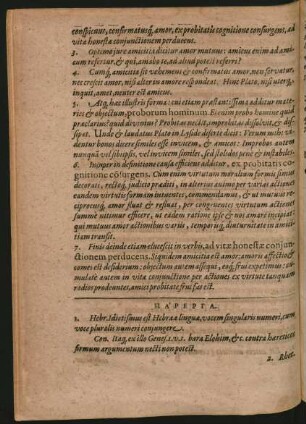 conspicuus, confirmatusq́, amor, ex probitatis cognitione consurgens, ad
vitæ honestæ conjunctionem perducens.
3. Optimo jure amicitia dicitur amor mutuus: amicus enim ad amicum
refertur, & qui, amabo te, ad aliud potest referri?
4. Cumq́, amicitia sit vehemens & confirmatus amor, nec servatur,
nec crescit amor, nisi alter in amore respondeat. Hinc Plato, nisi uterq́,
inquit, amet, neuter est amicus.
5. Atq, hæc illustris forma: sui etiam præstantissima addicit materies
& objectum, proborum hominum. Etenim probo homine quid
præclarius? quid divinius?
Unde & laudatus Plato in Lyside deserte docet: Verum mihi videntur
bonos dicere similes esse invicem, & amicos: Improbos autem
nunquã vel sibi ipsis, vel invicem similes, sed stolidos pene & instabiles.
6. Insuper in definitione causa efficiens additur, ex probitatis cognitione
cõsurgens. Cum enim virtutum moralium formis simus
decorati, rectoq́, judicio præditi, in alterius animo per varias actiones
eandem virtutis formam intuentes, commendamus, & ut mutuus sit
reciprocusq́, amor
summè nitimur efficere, ut eâdem ratione ipse & nos amare incipiat:
qui mutuus amor actionibus variis, temporisq́, diuturnitate in amicitiam
transit.
7. Finis deinde etiam elucescit in verbis, ad vitæ honestæ conjunctionem
perducens. Siquidem amicitia est amor: amoris affectio &
comes est desiderium: objectum autem assiqui, eoq́, frui expetimus:
cumulatè autem in vitæ conjunctione per actiones ex virtute tanquam
radiis prodeuntes, amicis probitate frui fas est.
ΠΑΡΕΡΓΑ.
1. Hebr. Idiotismus est Hebrææ linguæ, vocem singularis numeri, cum
voce pluralis numeri conjungere.
Con. Itaq, ex illo Genes. 1. v. 1. bara Elohim, &c. contra hæreticos
firmum argumentum necti non potest.
2. Rhet.